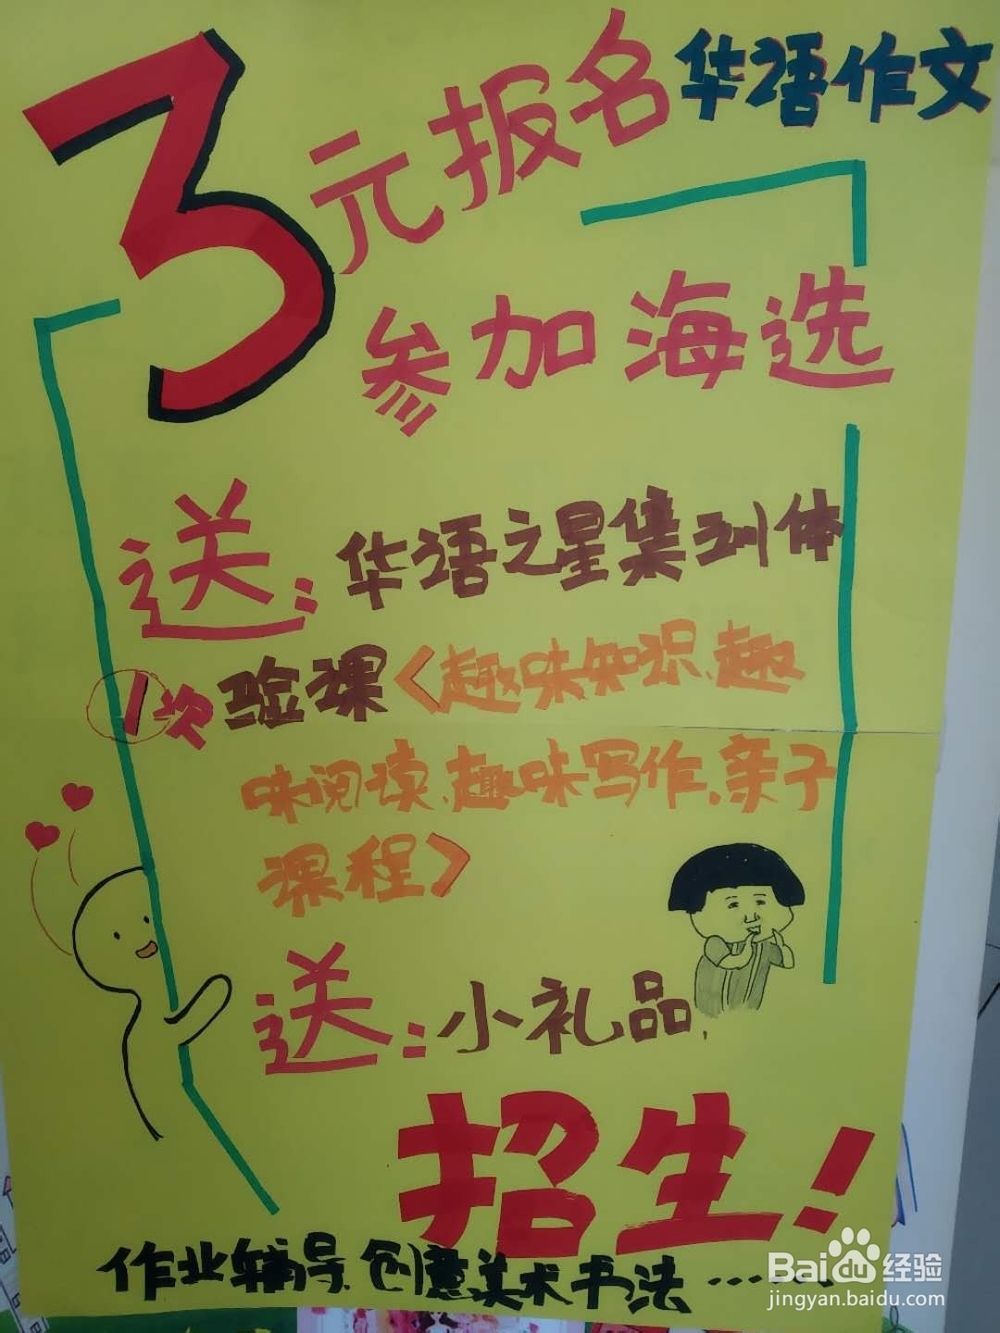 华语作文
3元报名
参加海选
送：华语之星集训体
1次验课<趣味知识、趣
味阅读、趣味写作、亲子
课程>
送：小礼品，
招生！
作业辅导、创意美术、书法……
Baidu经验
jingyan.baidu.com